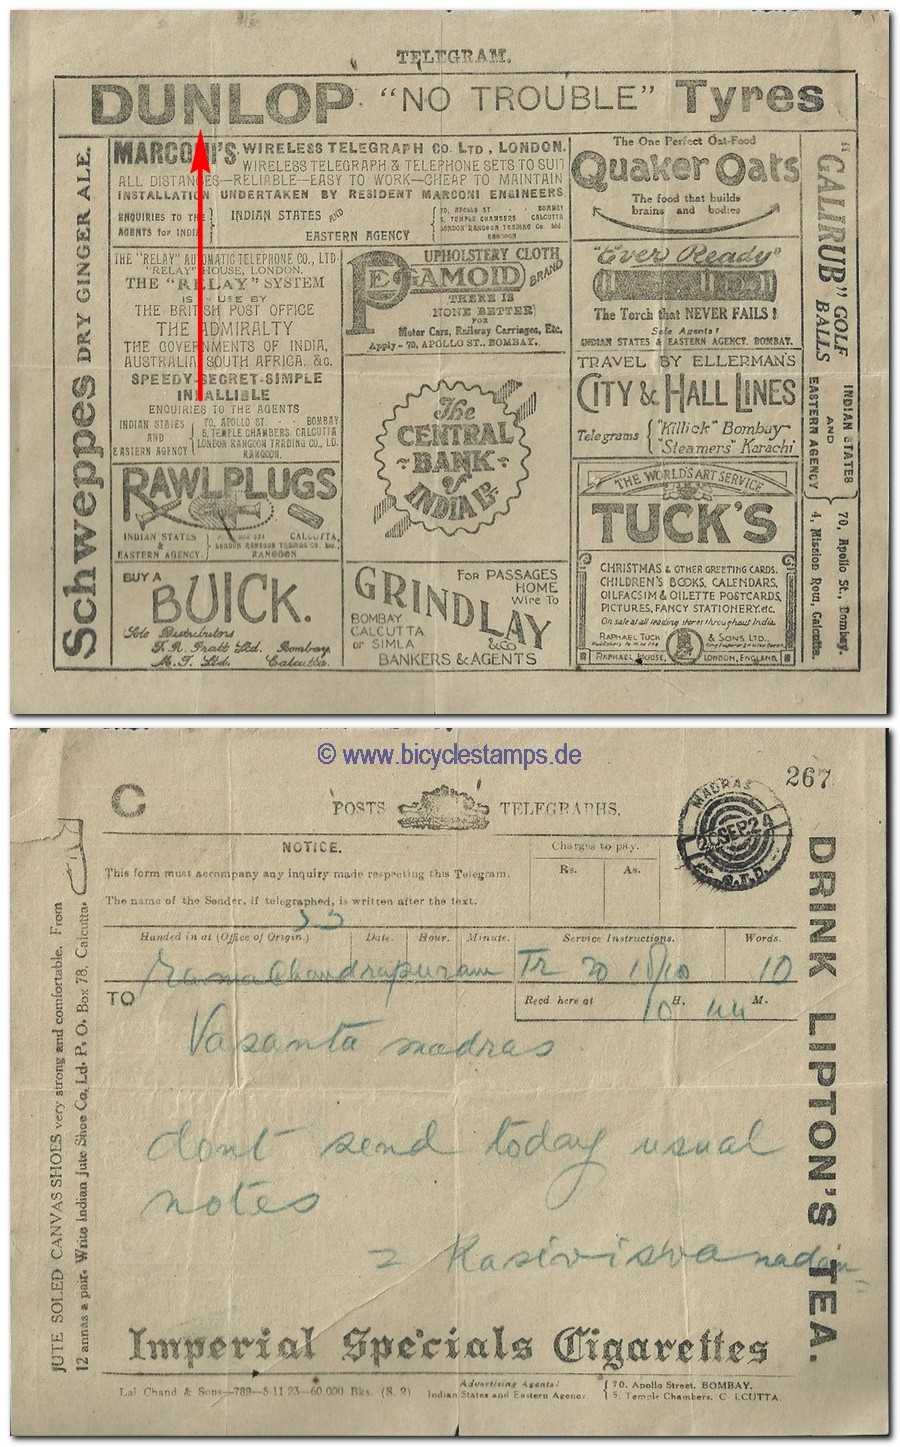 TELEGRAM.
DUNLOP "NO TROUBLE" Tyres
Schweppes DRY GINGER ALE.
MARCONI'S WIRELESS TELEGRAPH CO. LTD, LONDON.
WIRELESS TELEGRAPH & TELEPHONE SETS TO SUIT
ALL DISTANCES—RELIABLE—EASY TO WORK—CHEAP TO MAINTAIN
INSTALLATION UNDERTAKEN BY RESIDENT MARCONI ENGINEERS
ENQUIRIES TO THE AGENTS FOR INDIA
INDIAN STATES AND
EASTERN AGENCY
70, APOLLO ST. BOMBAY
5, TEMPLE CHAMBERS CALCUTTA
LONDON RANGOON TRADING CO. Ltd
RANGOON
THE "RELAY" AUTOMATIC TELEPHONE CO., LTD.
"RELAY" HOUSE, LONDON.
THE "RELAY" SYSTEM
IS IN USE BY
THE BRITISH POST OFFICE
THE ADMIRALTY
THE GOVERNMENTS OF INDIA,
AUSTRALIA, SOUTH AFRICA, &c.
SPEEDY-SECRET-SIMPLE
INFALLIBLE
ENQUIRIES TO THE AGENTS
INDIAN STATES
AND
EASTERN AGENCY
70, APOLLO ST. BOMBAY
5, TEMPLE CHAMBERS, CALCUTTA
LONDON RANGOON TRADING CO., LD.
RANGOON.
RAWLPLUGS
INDIAN STATES
&
EASTERN AGENCY
CALCUTTA.
LONDON RANGOON TRADING CO. Ltd.
RANGOON
BUY A
BUICK.
Sole Distributors
F. R. Pratt Ltd. Bombay.
M. T. Ltd. Calcutta.
UPHOLSTERY CLOTH
PEGAMOID BRAND
THERE IS
NONE BETTER
FOR
Motor Cars, Railway Carriages, Etc.
Apply - 70, APOLLO ST., BOMBAY.
The
CENTRAL
BANK
of
INDIA Ld.
GRINDLAY
&Co
For PASSAGES
HOME
Wire To
BOMBAY
CALCUTTA
or SIMLA
BANKERS & AGENTS
The One Perfect Oat-Food
Quaker Oats
The food that builds
brains and bodies
"Ever Ready"
The Torch that NEVER FAILS!
Sole Agents!
INDIAN STATES & EASTERN AGENCY. BOMBAY.
TRAVEL BY ELLERMAN'S
CITY & HALL LINES
Telegrams
"Killick" Bombay
"Steamers" Karachi
THE WORLD'S ART SERVICE
TUCK'S
CHRISTMAS & OTHER GREETING CARDS.
CHILDREN'S BOOKS, CALENDARS,
OILFACSIM & OILETTE POSTCARDS,
PICTURES, FANCY STATIONERY, etc.
On sale at all leading stores throughout India
RAPHAEL TUCK & SONS LTD.,
RAPHAEL HOUSE, LONDON, ENGLAND.
"GALIRUB" GOLF BALLS
INDIAN STATES
AND
EASTERN AGENCY
70, Apollo St., Bombay.
4, Mission Row, Calcutta.
© www.bicyclestamps.de
C
POSTS TELEGRAPHS.
267
MADRAS
SEP.24
G.T.O.
NOTICE.
This form must accompany any inquiry made respecting this Telegram.
The name of the Sender, if telegraphed, is written after the text.
Charges to pay.
Rs. As.
Handed in at (Office of Origin.) Date. Hour. Minute. Service Instructions. Words.
Ramachandrapuram Tr 20 18/10 10
TO
Recd here at 10 H. 44 M.
Vasanta madras
dont send today usual
notes
= Kasivisvanadam =
Imperial Specials Cigarettes
Lal Chand & Sons—789—5-11-23—60,000 Bks. (S. 2)
Advertising Agents!
Indian States and Eastern Agency
70, Apollo Street. BOMBAY.
5, Temple Chambers, CALCUTTA
JUTE SOLED CANVAS SHOES very strong and comfortable. From
12 annas a pair. Write Indian Jute Shoe Co., Ld. P. O. Box 78, Calcutta.
DRINK LIPTON'S TEA.